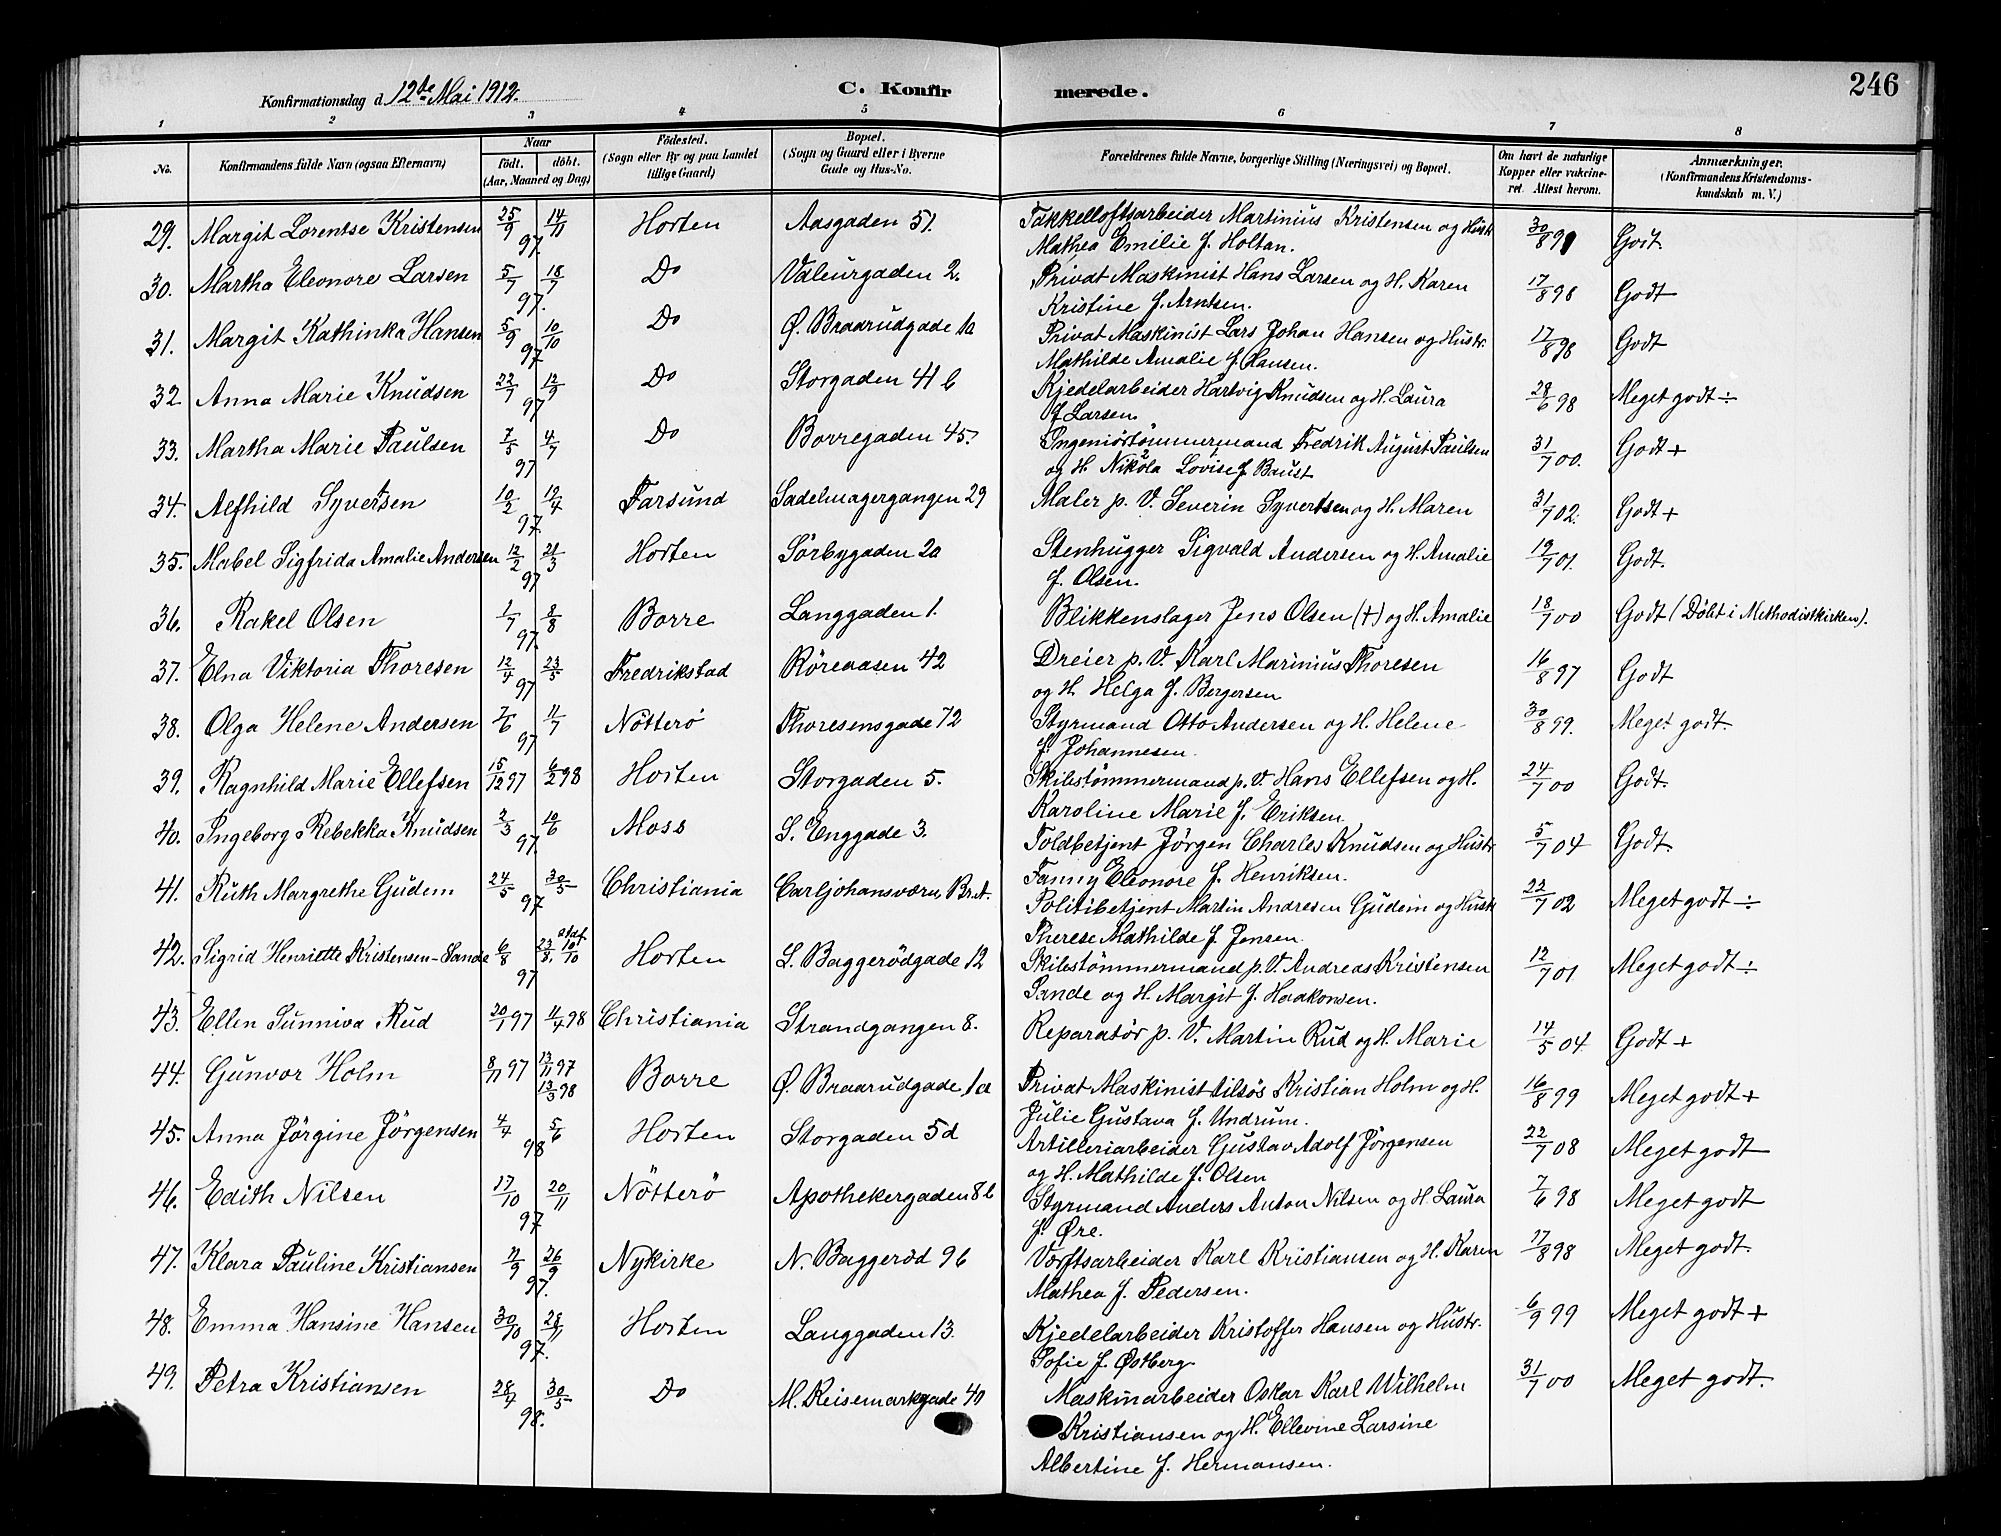 246
Konfirmationsdag d. 12te Mai 1912.
C. Konfirmerede.
1 2 3 4 5 6 7 8
No. Konfirmandens fulde Navn (ogsaa Efternavn) Naar født. døbt. (Aar, Maaned og Dag) Fødested. (Sogn eller By og paa Landet tillige Gaard) Bopæl. (Sogn og Gaard eller i Byerne Gade og Hus-No. Forældrenes fulde Navne, borgerlige Stilling (Næringsvei) og Bopæl. Om havt de naturlige Kopper eller vakcineret. Attest herom. Anmærkninger. (Konfirmandens Kristendomskundskab m. V.)
29. Margit Lorentse Kristensen 25/9 97. 14/11 Horten Aasgaden 51. Takkelloftsarbeider Martinius Kristensen og Hustr. 30/8 99 Godt
Mathea Emilie f. Holtan.
30. Martha Eleonore Larsen 5/7 97. 18/7 Do Valeurgaden 2. Privat Maskinist Hans Larsen og H. Karen 17/8 98 Godt
Kristine f. Arntsen.
31. Margit Kathinka Hansen 5/9 97 10/10 Do Ø. Braarudgade 1a Privat Maskinist Lars Johan Hansen og Hustr. 17/8 98 Godt
Mathilde Amalie f. Hansen.
32 Anna Marie Knudsen 22/7 97 12/9 Do Storgaden 41 b Kjedelarbeider Hartvig Knudsen og H. Laura 28/6 98 Meget godt ÷
f. Larsen.
33. Martha Marie Paulsen 7/5 97 4/7 Do Borregaden 45. Ingeniørtømmermand Fredrik August Paulsen 31/7 00. Godt +
og H. Nikola Lovise f. Baust
34. Alfhild Syvertsen 10/2 97. 19/4 Farsund Sadelmagergangen 29 Maler p. V. Severin Syvertsen og H. Maren 31/7 02. Godt +
35. Mabel Sigfrida Amalie Andersen 12/2 97 21/3 Horten Sørbygaden 20 Stenhugger Sigvald Andersen og H. Amalie 19/7 01. Godt.
f. Olsen.
36. Rakel Olsen 1/7 97. 8/8 Borre Langgaden 1. Blikkenslager Jens Olsen (+) og H. Amalie 18/7 00 Godt (Døbt i Methodistkirken).
37. Elna Viktoria Thoresen 12/4 97 23/5 Fredrikstad Røreaasen 42 Dreier p. V. Karl Marinius Thoresen 16/8 97 Godt
og H. Helga f. Borgersen
38. Olga Helene Andersen 7/6 97 11/7 Nøtterø Thoresensgade 72 Styrmand Otto Andersen og H. Helene 30/8 99. Meget godt.
f. Johannesen.
39. Ragnhild Marie Ellefsen 15/12 97 6/2 98 Horten Storgaden 5. Skibstømmermand p. V. Hans Ellefsen og H. 24/7 00 Godt.
Karoline Marie f. Eriksen.
40. Ingeborg Rebekka Knudsen 2/3 97. 10/6 Moss S. Enggade 3. Toldbetjent Jørgen Charles Knudsen og Hustr 5/7 04 Godt.
Fanny Eleonore f. Henriksen.
41. Ruth Margrethe Gudem 24/5 97 30/5 Christiania Carljohansværn, Br. A. Politibetjent Martin Andresen Gudem og Hustr 22/7 02 Meget godt ÷
Therese Mathilde f. Jensen.
42. Sigrid Henriette Kristensen-Sande 6/8 97 23/8, stdf 10/10 Horten L. Baggerødgade 12 Skibstømmermand p. V. Andreas Kristensen 12/7 01 Meget godt ÷
Sande og H. Margit f. Haakonsen.
43. Ellen Sunniva Rud 20/1 97 11/4 98 Christiania Strandgangen 8. Reparatør p. V. Martin Rud og H. Marie 14/5 04. Godt +
44. Gunvor Holm 8/11 97 13/11 97 13/3 98 Borre Ø. Braarudgade 1a Privat Maskinist tilsøs Kristian Holm og H. 16/8 99 Meget godt +
Julie Gustava f. Undrum.
45. Anna Jørgine Jørgensen 4/4 98 5/6 Horten Storgaden 5d Artilleriarbeider Gustav Adolf Jørgensen 22/7 08 Meget godt
og H. Mathilde f. Olsen
46. Edith Nilsen 17/10 97 20/11 Nøtterø Apothekergaden 8 b Styrmand Anders Anton Nilsen og H. Laura 7/6 98 Meget godt
f. Øre.
47. Klara Pauline Kristiansen 11/9 97. 26/9 Nykirke N. Baggerød 96 Værftsarbeider Karl Kristiansen og H. Karen 17/8 98 Meget godt.
Mathea f. Pedersen.
48. Emma Hansine Hansen 30/10 97. 28/11 Horten Langgaden 13. Kjedelarbeider Kristoffer Hansen og Hustr. 6/9 99 Meget godt +
Sofie f. Østberg.
49. Petra Kristiansen 28/4 98. 30/5 Do M. Reisemarkgade 40 Maskinarbeider Oskar Karl Wilhelm 31/7 00 Meget godt.
Kristiansen og H. Ellevine Larsine
Albertine f. Hermansen.